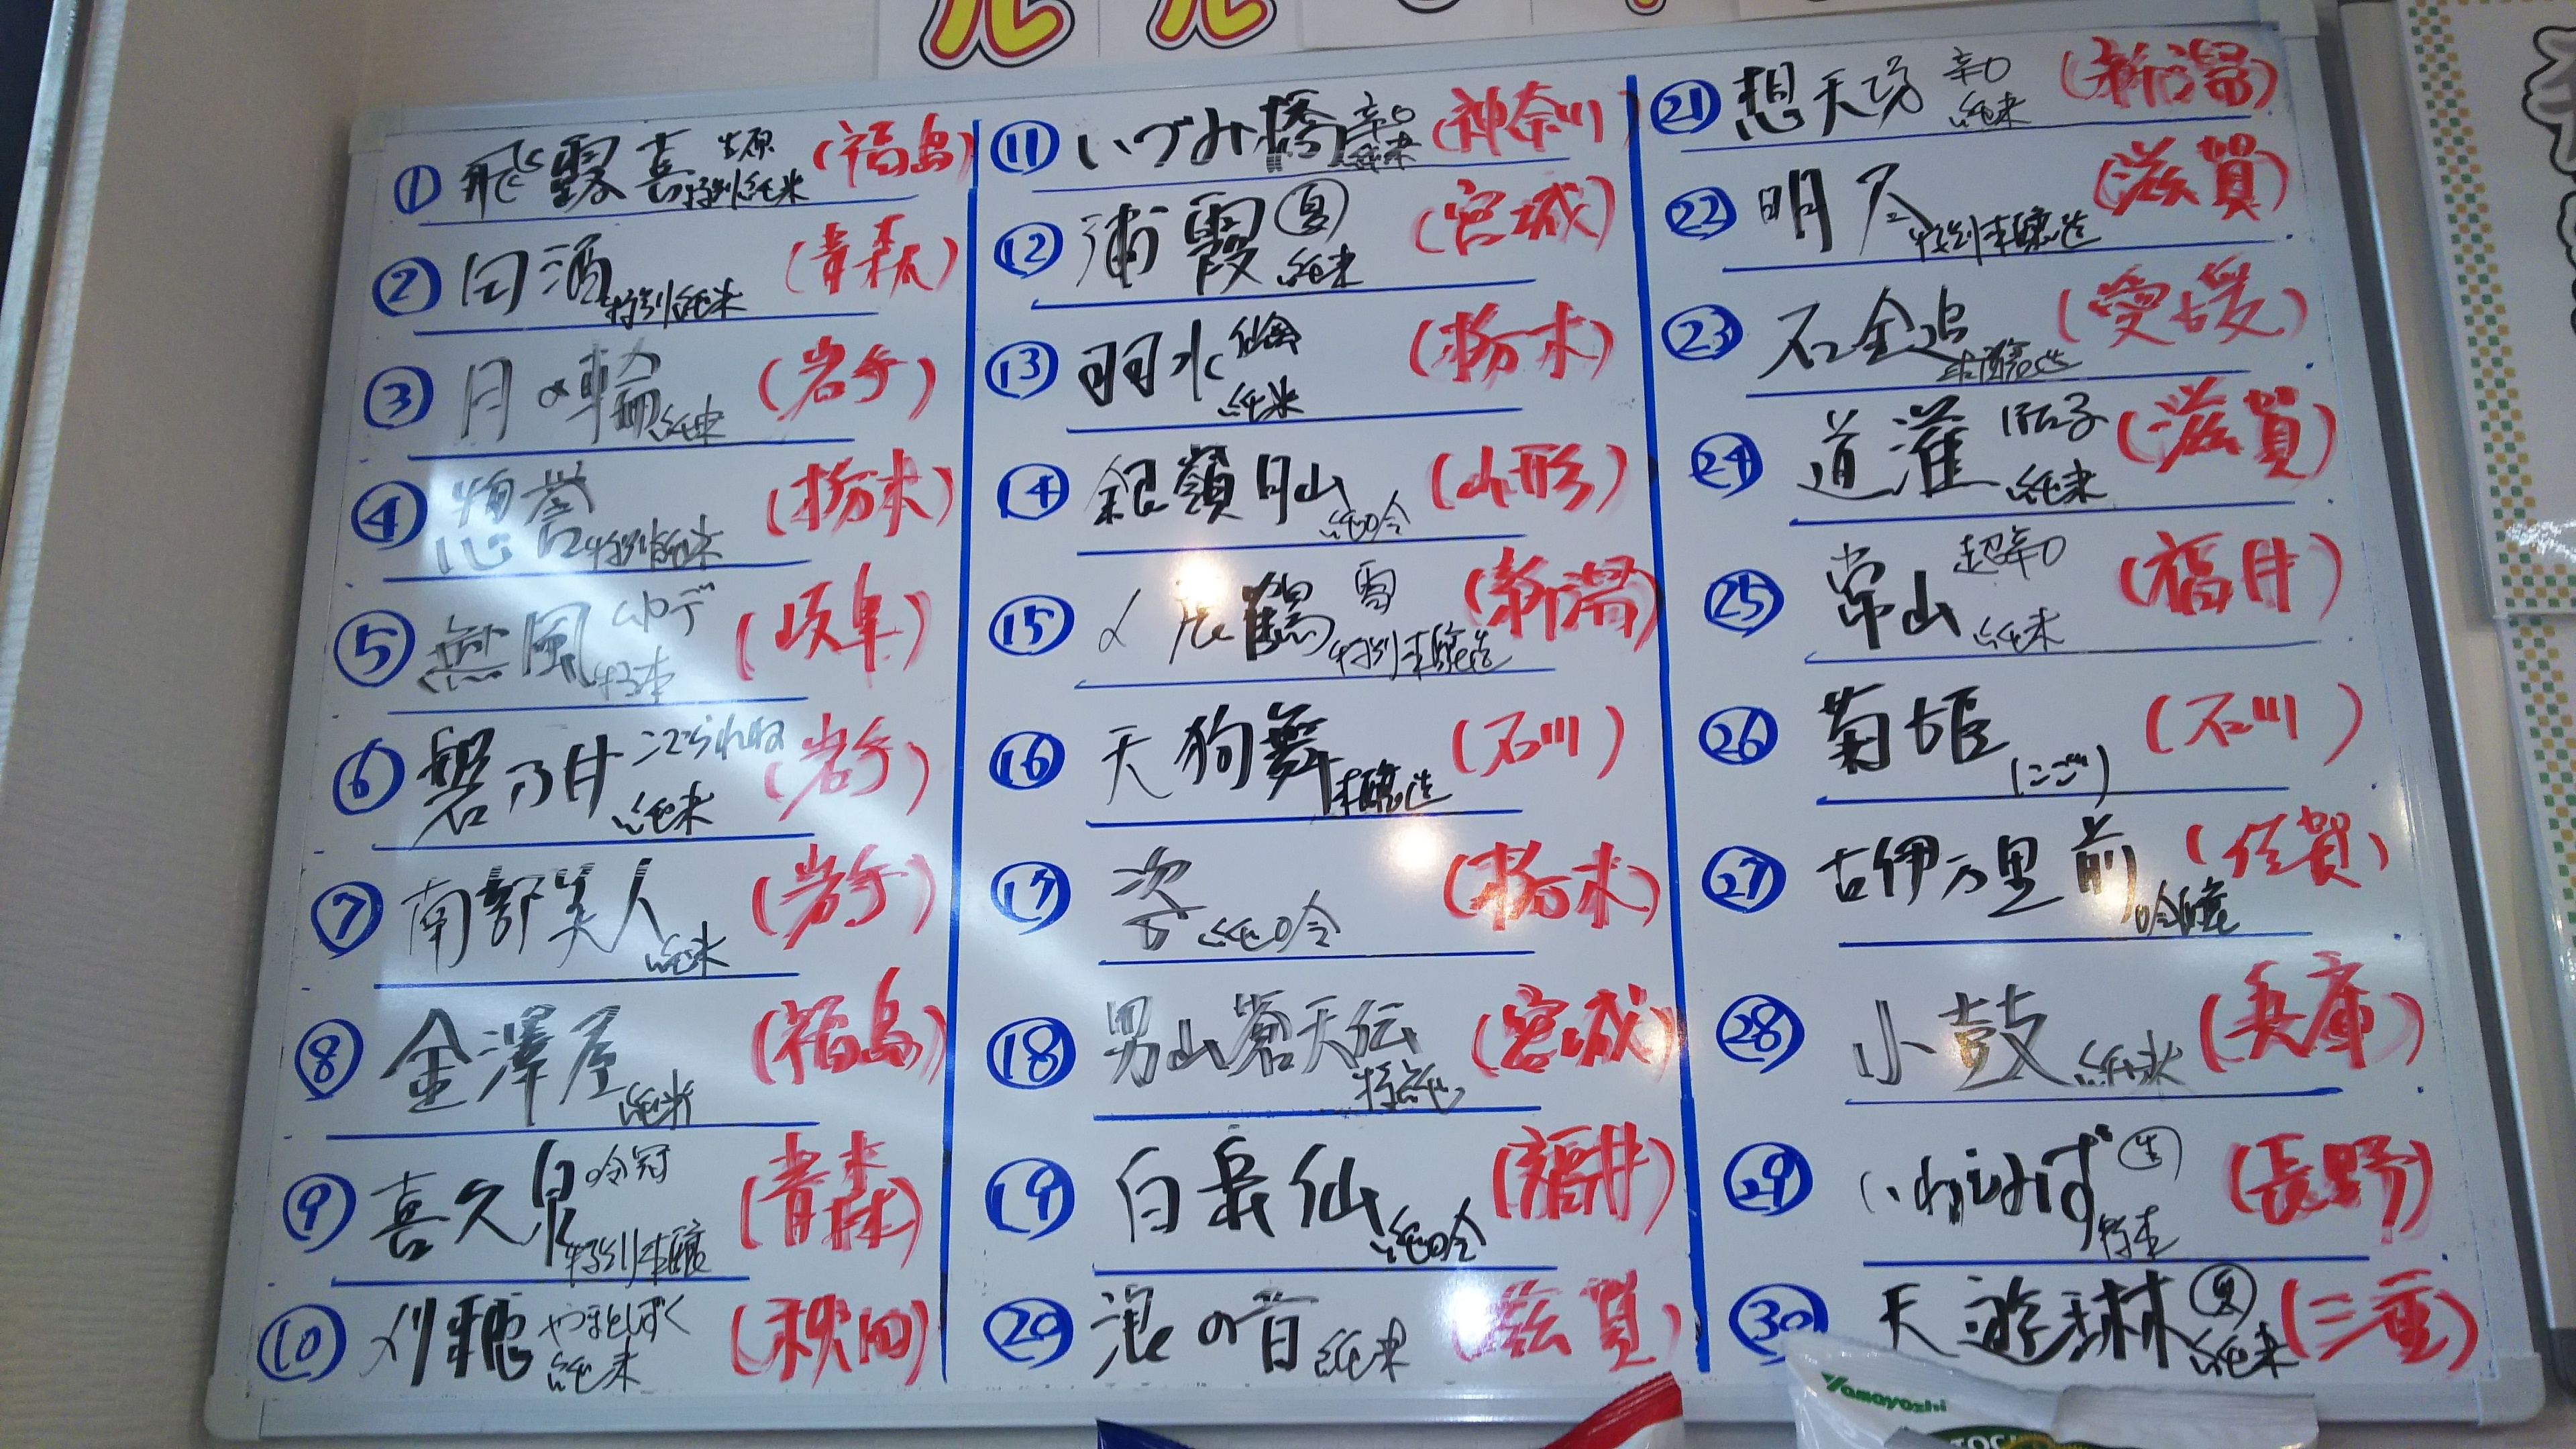 ① 飛露喜 生原 特別純米 (福島)
② 田酒 特別純米 (青森)
③ 月の輪 純米 (岩手)
④ 惣誉 特別純米 (栃木)
⑤ 無風 特本 (岐阜)
⑥ 磐乃井 こでられね 純米 (岩手)
⑦ 南部美人 純米 (岩手)
⑧ 金澤屋 純米 (福島)
⑨ 喜久泉 吟冠 特別本醸 (青森)
⑩ 刈穂 やまとしずく 純米 (秋田)
⑪ いづみ橋 辛口 純米 (神奈川)
⑫ 浦霞 夏 純米 (宮城)
⑬ 羽水 仙禽 純米 (栃木)
⑭ 銀嶺月山 純吟 (山形)
⑮ 〆張鶴 雪 特別本醸造 (新潟)
⑯ 天狗舞 本醸造 (石川)
⑰ 姿 純吟 (栃木)
⑱ 男山蒼天伝 特純 (宮城)
⑲ 白岳仙 純吟 (福井)
⑳ 浪の音 純米 (滋賀)
㉑ 想天坊 辛口 純米 (新潟)
㉒ 明尽 特別本醸造 (滋賀)
㉓ 石金追 本醸造 (愛媛)
㉔ 道灌 純米 (滋賀)
㉕ 常山 超辛口 純米 (福井)
㉖ 菊姫 (にごり) (石川)
㉗ 古伊万里 前 吟醸 (佐賀)
㉘ 小鼓 純米 (兵庫)
㉙ いわしみず 生 特本 (長野)
㉚ 天遊琳 夏 純米 (三重)
Yamayoshi